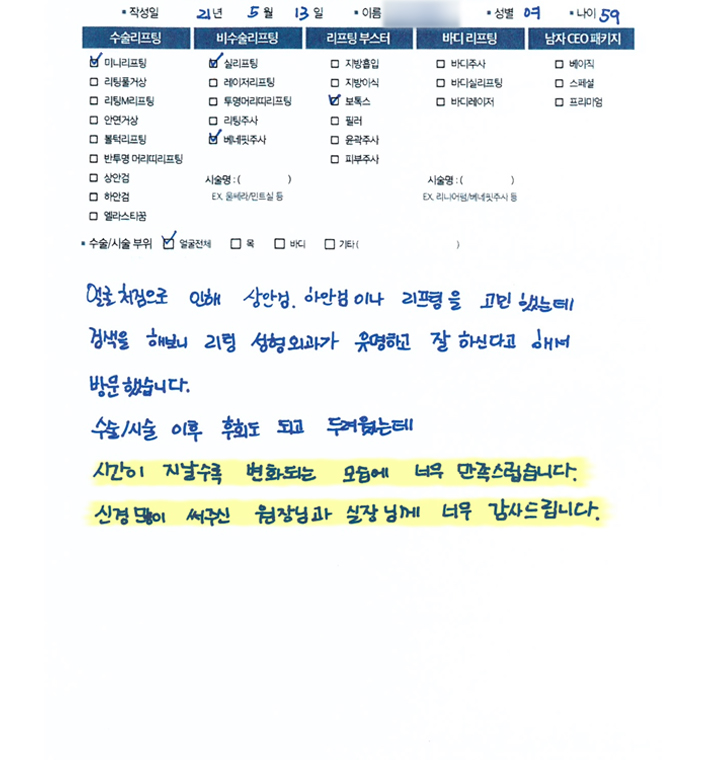 ▪ 작성일 21년 5월 13일 ▪ 이름 ▪ 성별 여 ▪ 나이 59
수술리프팅 비수술리프팅 리프팅 부스터 바디 리프팅 남자 CEO 패키지
☑ 미니리프팅 ☑ 실리프팅 ☐ 지방흡입 ☐ 바디주사 ☐ 베이직
☐ 리팅풀거상 ☐ 레이저리프팅 ☐ 지방이식 ☐ 바디실리프팅 ☐ 스페셜
☐ 리팅M리프팅 ☐ 투명머리띠리프팅 ☑ 보톡스 ☐ 바디레이저 ☐ 프리미엄
☐ 안면거상 ☐ 리팅주사 ☐ 필러
☐ 볼턱리프팅 ☑ 베네핏주사 ☐ 윤곽주사
☐ 반투명 머리띠리프팅 ☐ 피부주사
☐ 상안검 시술명 : ( ) 시술명 : ( )
☐ 하안검 EX. 울쎄라/민트실 등 EX. 리니어펌/베네핏주사 등
☐ 엘라스티꿈
▪ 수술/시술 부위 ☑ 얼굴전체 ☐ 목 ☐ 바디 ☐ 기타 ( )
얼굴 처짐으로 인해 상안검. 하안검이나 리프팅을 고민 했는데
검색을 해보니 리팅 성형외과가 유명하고 잘 하신다고 해서
방문했습니다.
수술/시술 이후 후회도 되고 두려웠는데
시간이 지날수록 변화되는 모습에 너무 만족스럽습니다.
신경 많이 써주신 원장님과 실장님께 너무 감사드립니다.